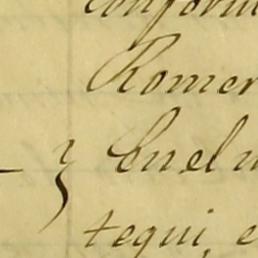 conform
Romer
3 En el m
tequi, e